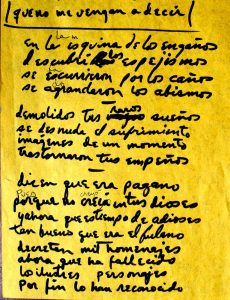 ¡QUE NO ME VENGAN A DECIR!
en la esquina de los engaños
descubrí los espejismos
se escurrieron por los caños
se agrandaron los abismos
demolidos tus raros sueños
se desnuda el sufrimiento
imágenes de un momento
trastornaron tus empeños
dicen que era pagano
porque no creía en tus dioses
y ahora que es tiempo de adioses
tan bueno que era el fulano
decretan mil homenajes
ahora que ha fallecido
los ilustres personajes
por fin lo han reconocido